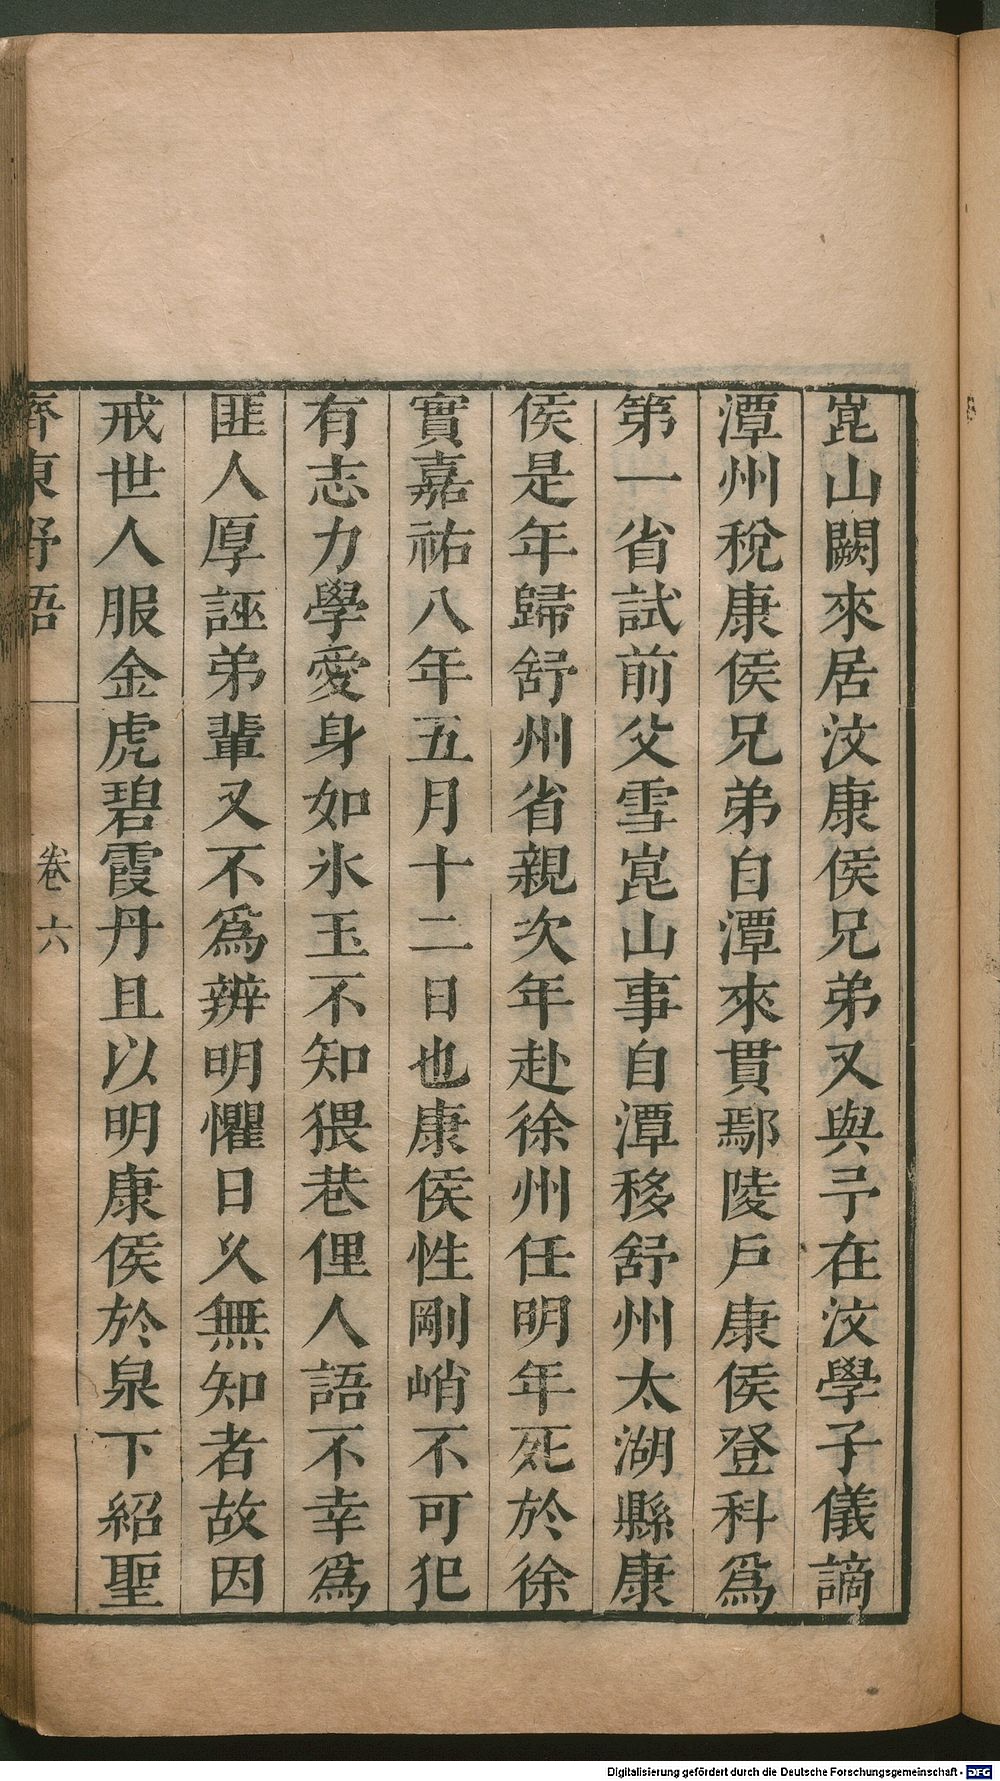 崑山闕來居汶康侯兄弟又與予在汶學子儀謫
潭州稅康侯兄弟自潭來貫鄢陵戶康侯登科爲
第一省試前父雪崑山事自潭移舒州太湖縣康
侯是年歸舒州省親次年赴徐州任明年死於徐
實嘉祐八年五月十二日也康侯性剛峭不可犯
有志力學愛身如氷玉不知猥巷俚人語不幸爲
匪人厚誣弟輩又不爲辨明懼日久無知者故因
戒世人服金虎碧霞丹且以明康侯於泉下紹聖
齊東野語
卷六
Digitalisierung gefördert durch die Deutsche Forschungsgemeinschaft - DFG